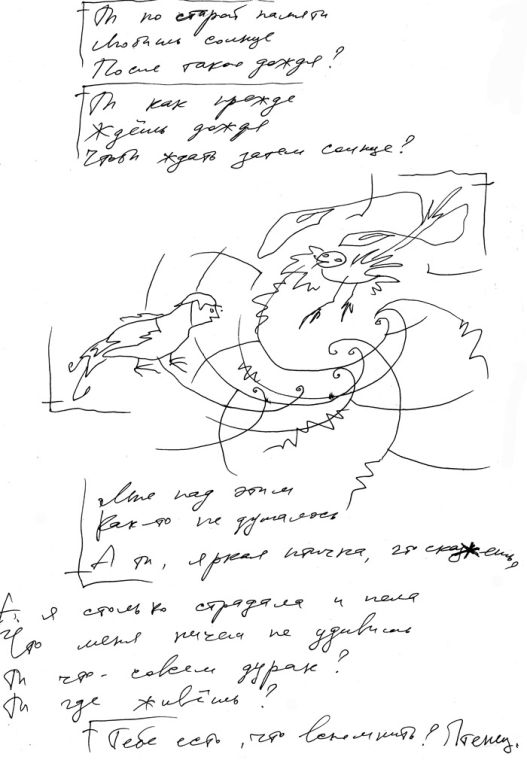 Ты по старой памяти
Любишь солнце
После такого дождя?
Ты как прежде
Ждёшь дождя
Чтобы ждать затем солнце?
Мне над этим
Как-то не думалось
А ты, яркая птичка, что скажешь?
А я столько страдала и пела
Что меня ничем не удивишь
Ты что - совсем дурак?
Ты где живёшь?
Тебе есть, что вспомнить? Птенец.